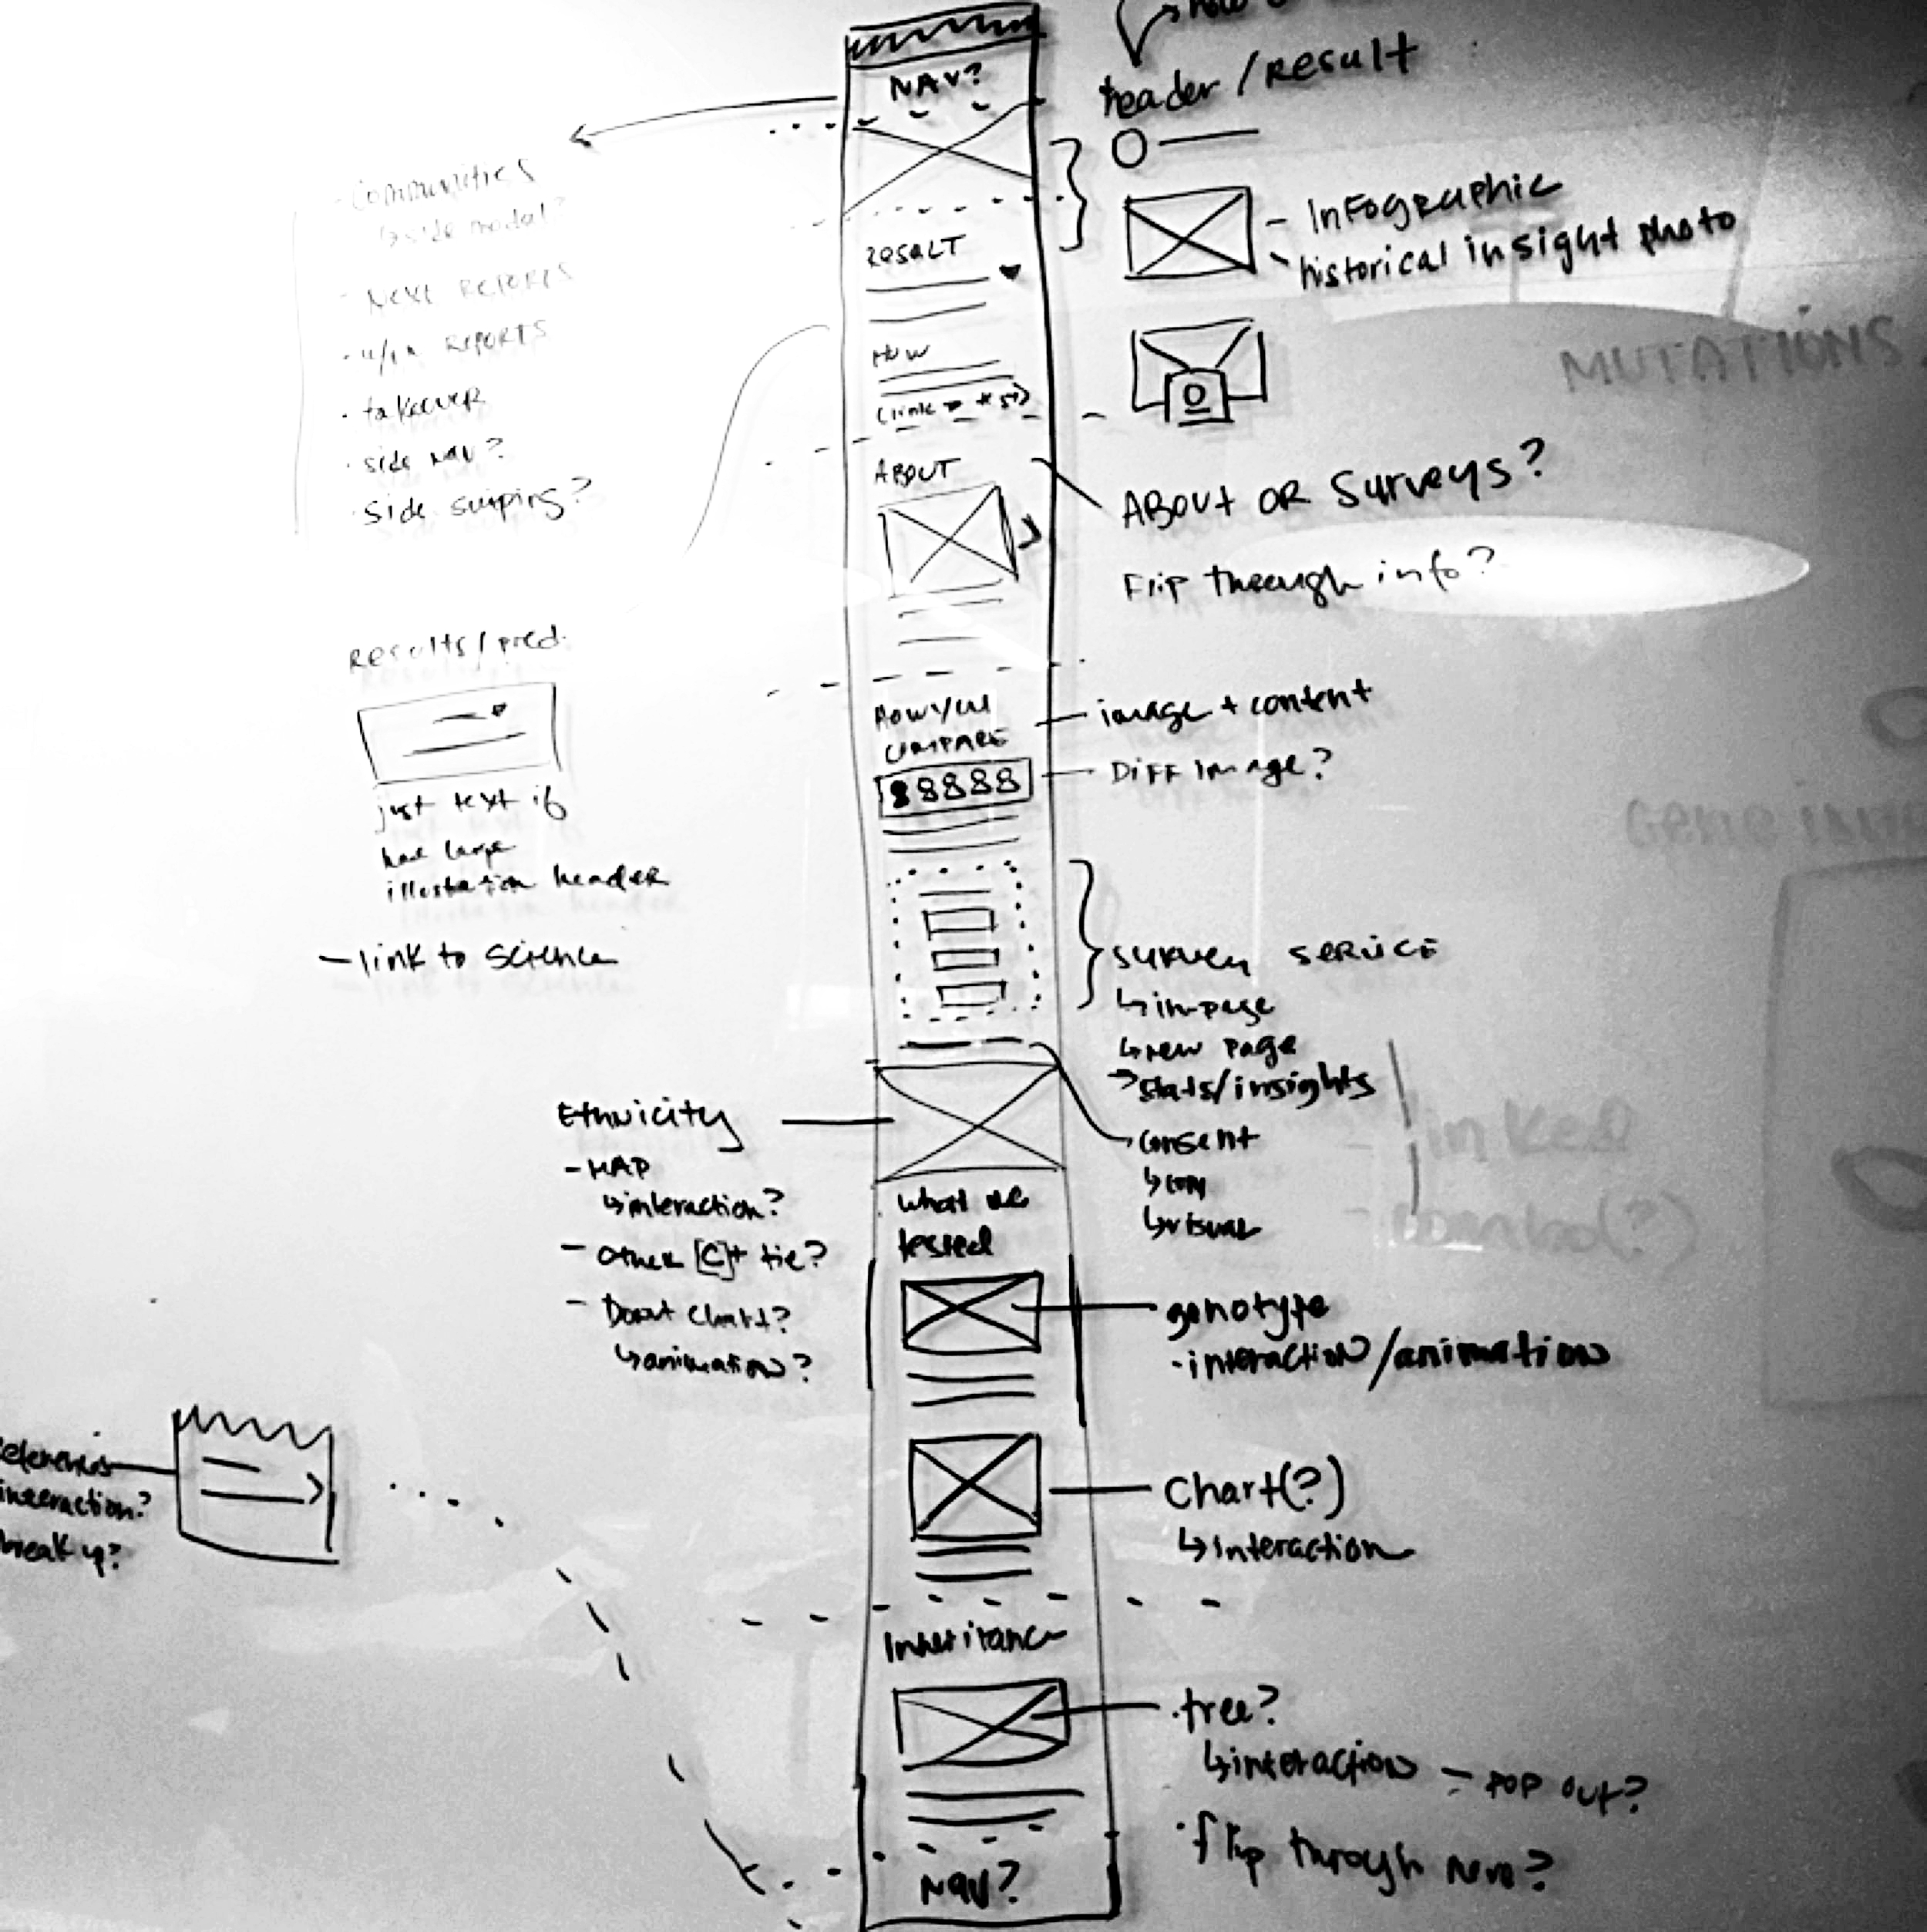 NAV?
header/result
- Infographic
- historical insight photo
Communities
↳ side modal?
- Next Reports
REPORTS
· takeover
· side nav?
· side swiping?
RESULT
HOW
(link
ABOUT
ABOUT OR SURVEYS?
Flip through info?
MUTATIONS
Results/pred.
just text if
have large
illustration header
- link to science
HOW YOU
COMPARE
image + content
88888
Diff image?
survey service
↳ in-page
↳ new page
→ stats/insights
consent
↳ visual
linked
Ethnicity
- MAP
↳ interaction?
- other [C]+ tie?
- Donut chart?
↳ animation?
what we
tested
genotype
- interaction/animation
Chart(?)
↳ interaction
interaction?
break up?
Inheritance
· tree?
↳ interaction - pop out?
· flip through here?
NAV?